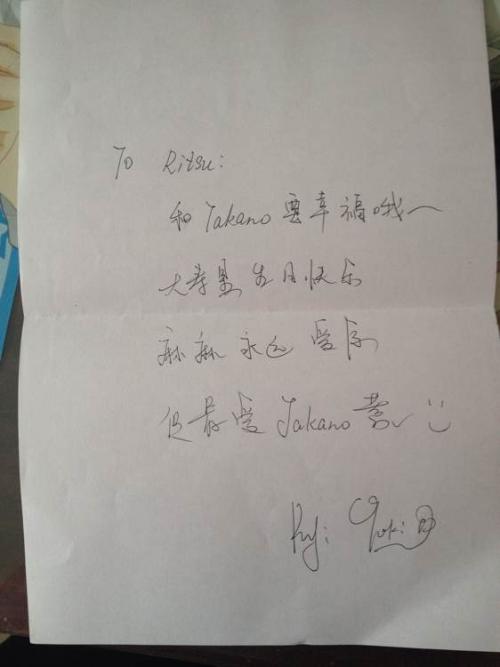 To Ritsu:
和 Takano 要幸福哦~
大寿星生日快乐
麻麻永远爱你
但最爱 Takano
By: Yuki